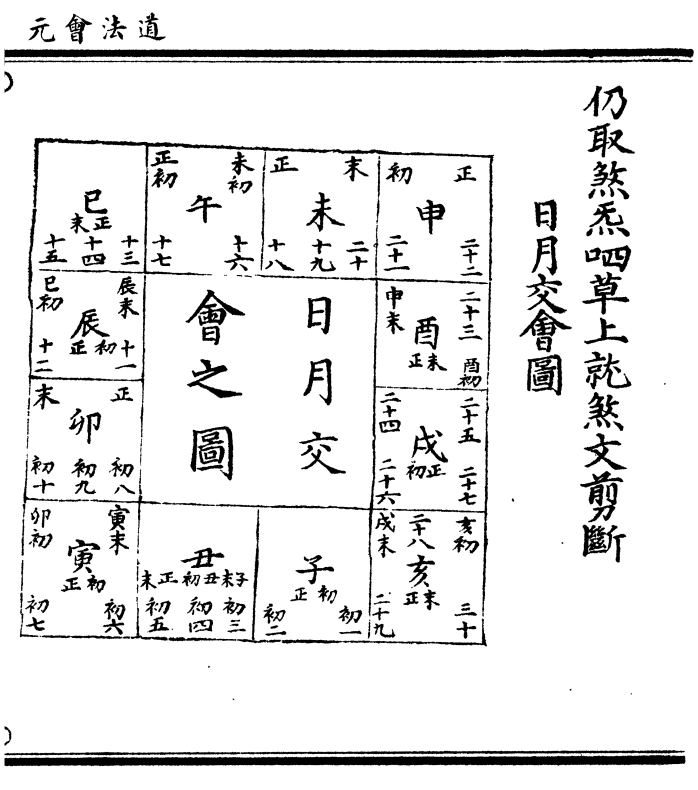 道法會元
仍取煞炁呬草上就煞文剪斷
日月交會圖
日月交
會之圖
正 初
申
二十二 二十一
末 正
未
二十 十九 十八
未初 正初
午
十六 十七
巳
正末
十三 十四 十五
辰末 巳初
辰
初正
十一 十二
正 末
卯
初八 初九 初十
寅末 卯初
寅
初正
初六 初七
丑
子末 丑初 正末
初三 初四 初五
子
初正
初一 初二
亥初 二十八 戌末
亥
末正
三十 二十九
二十五 二十四
戌
正初
二十七 二十六
二十三 申末
酉
末正
酉初